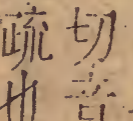 切音
疏也